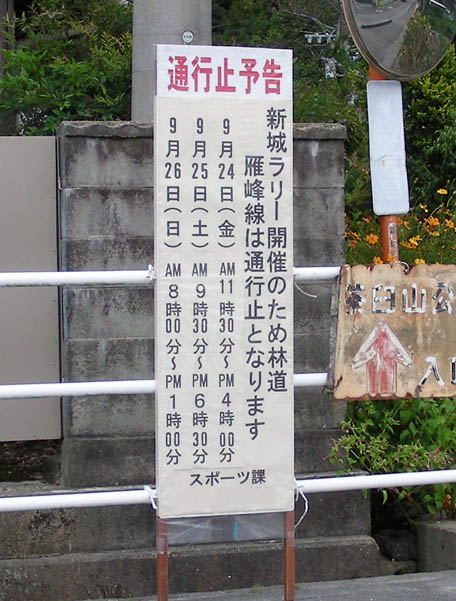 通行止予告
新城ラリー開催のため林道
雁峰線は通行止となります
9月24日(金) AM11時30分~PM4時00分
9月25日(土) AM9時30分~PM6時30分
9月26日(日) AM8時00分~PM1時00分
スポーツ課
茶臼山公
入口